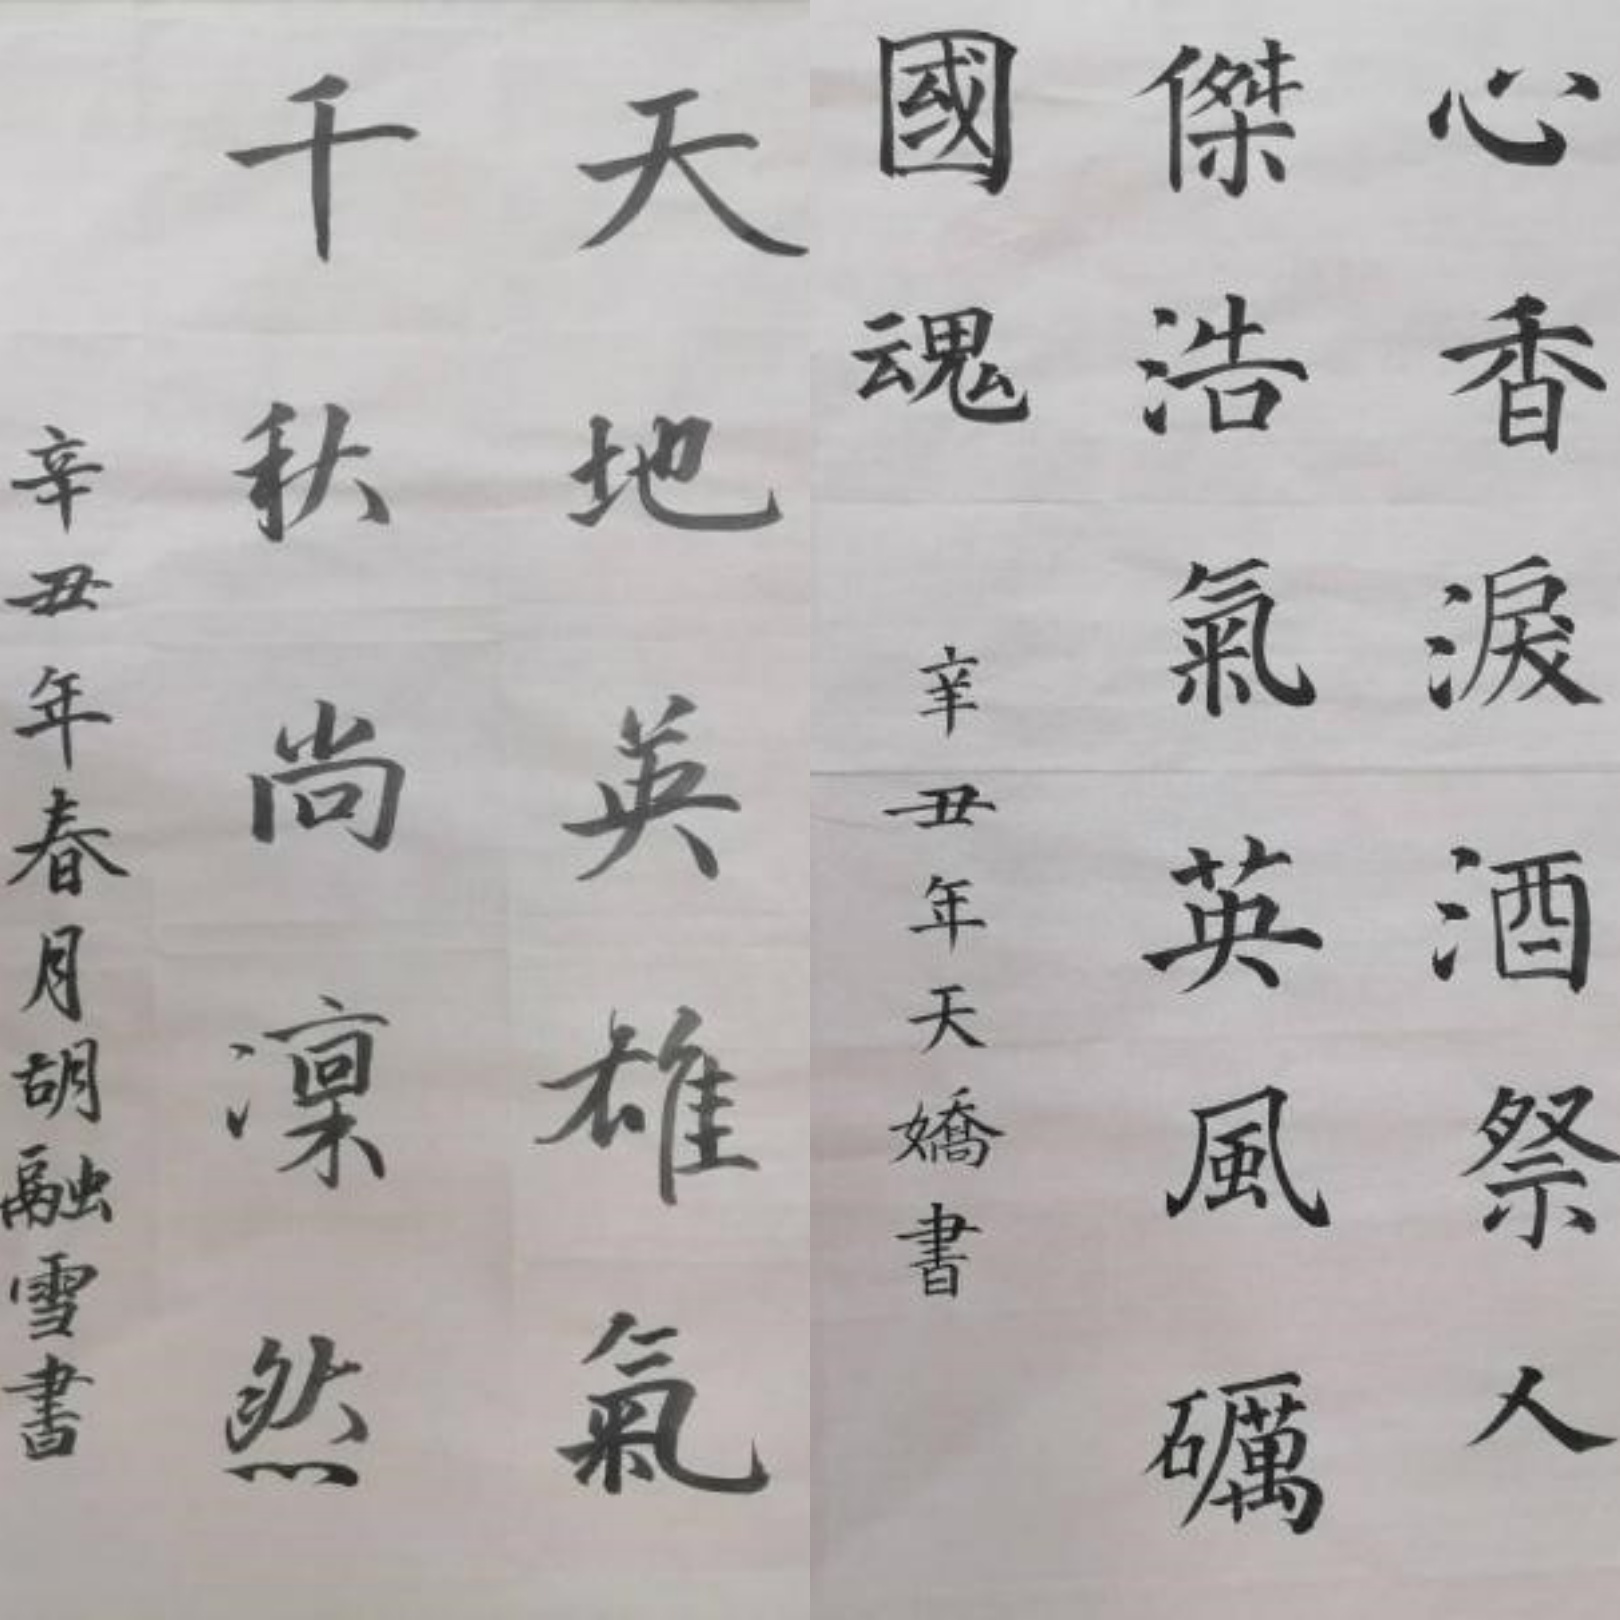 天地英雄氣
千秋尚凜然
辛丑年春月胡融雪書
心香淚酒祭人
傑浩氣英風礪
國魂
辛丑年天嬌書